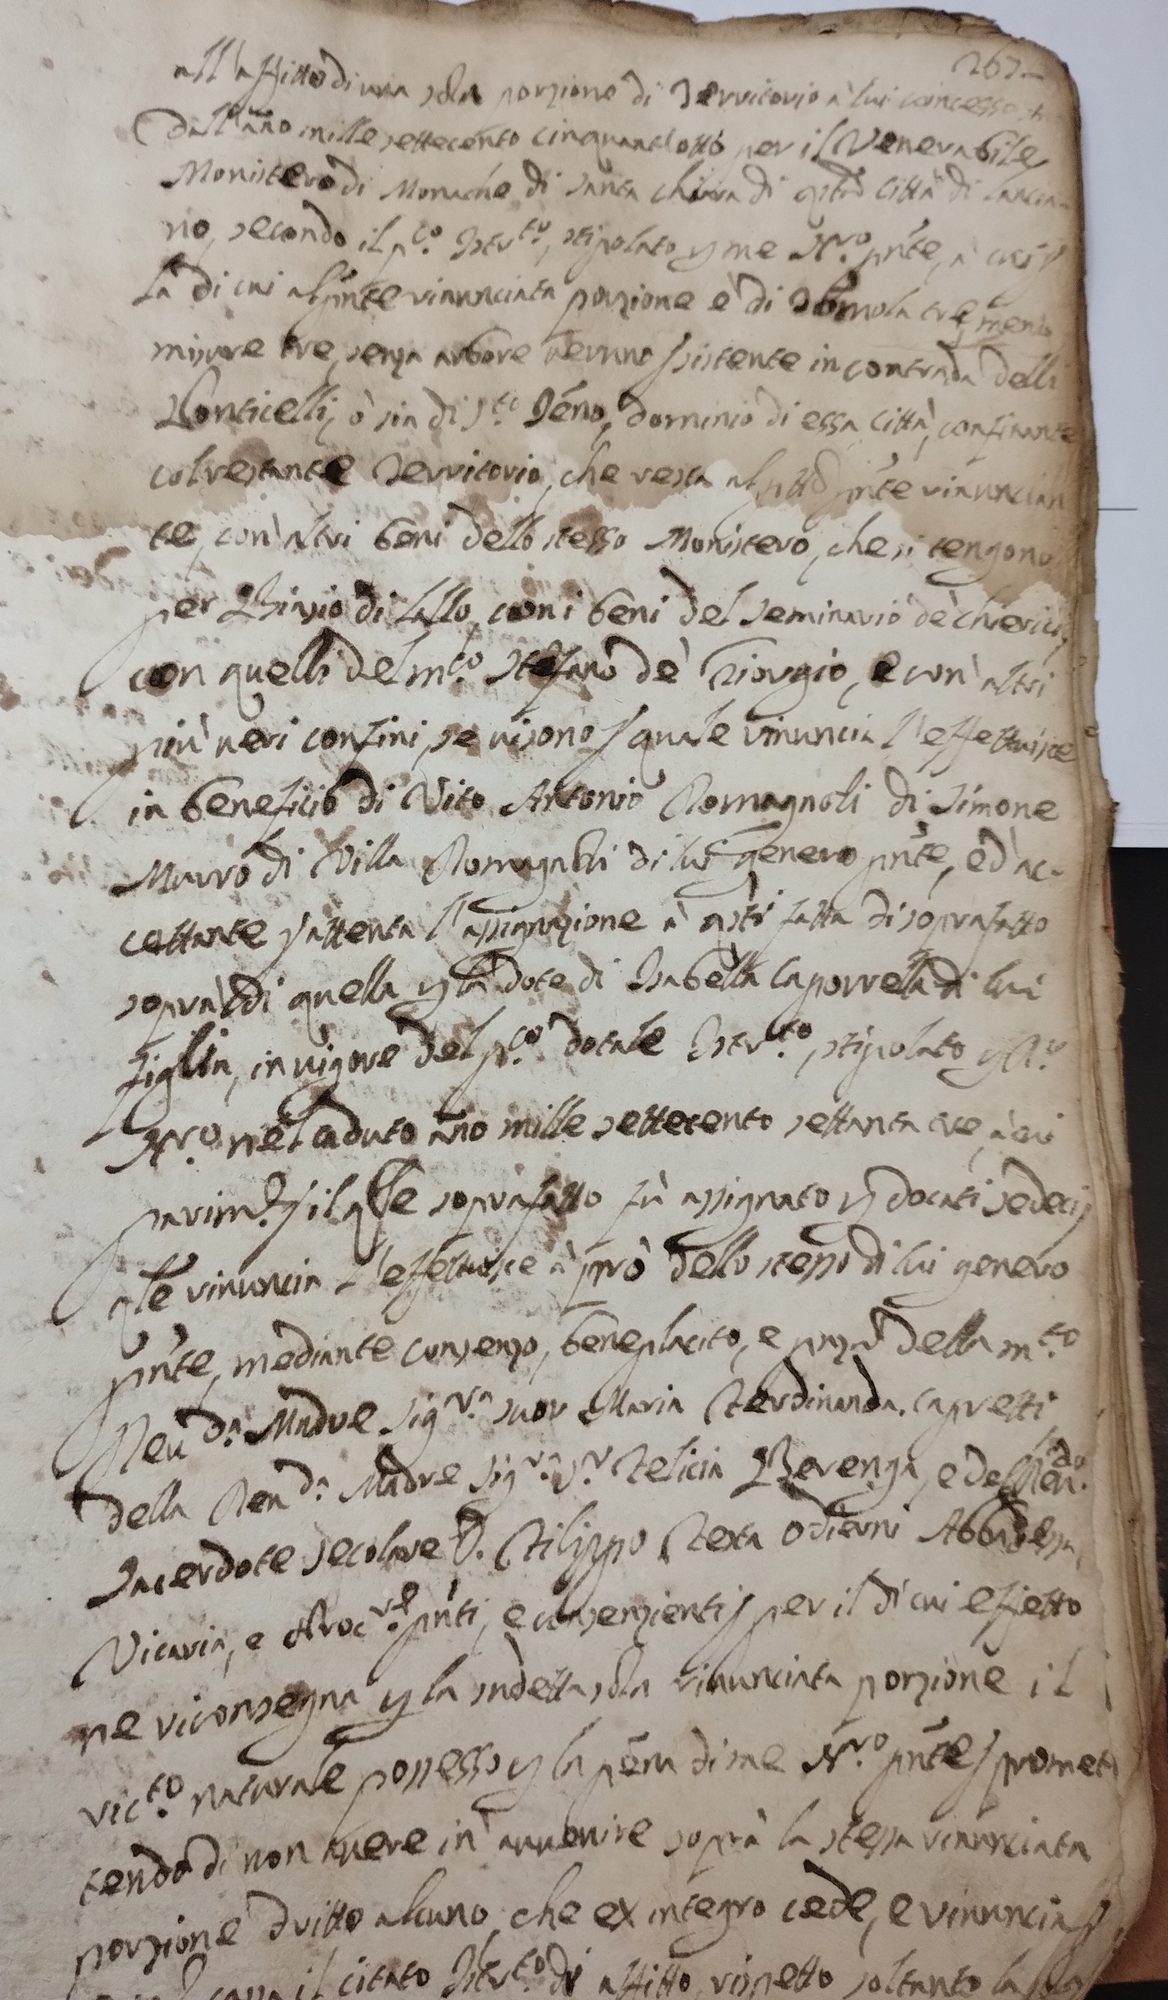 267
all'affitto di una sola porzione di Territorio à lui concesso
dall'año mille settecento cinquant'otto per il Venerabile
Monistero di Monache di Santa Chiara di qsta Città di Lancia-
no, secondo il pco. Istrto., stipolato y me Nro. pñte, à cui
La di cui al pñte rinunciata porzione è di tomola tre, meno
misure tre, senza arbore veruno sistente in contrada delli
Ponticelli, ò sia di Sto. Iéno, dominio di essa Città, confinante
col restante Territorio, che resta al pñte rinuncian
te, con altri beni dello stesso Monistero, che si tengono
per Biasio di Lallo, con i beni del Seminario dè Chierici,
con quelli del mco. Stefano dè Giorgio, e con altri
più veri confini, se vi sono; quale rinuncia l'effettuisce
in beneficio di Vito Antonio Romagnoli di Simone
Mauro di Villa Romagnoli di lui genero pñte, ed ac-
cettante; attenta l'assignazione à qsti fatta di soprafatto
sopra di quella y la dote di Isabella Laporrella di lui
figlia, in vigore del pco. dotale Istrto., stipolato y
Nro. nel caduto año mille settecento settanta tre, à cui
parimte.; il qle soprafatto fù assignato y docati sedeci;
qle rinuncia l'effettuisce à prò dello stesso di lui genero
pñte, mediante consenzo, beneplacito, e pnza della mto.
Revda. Madre Sigra. Suor Maria Ferdinanda Capretti,
della Revda. Madre Sigra. Sr. Felicia Berenga, e del Revdo.
Sacerdote secolare D. Filippo Testa odierni Abbadessa,
Vicaria, e Procre. pñti, e consenzienti; per il di cui effetto
ne riconsegna y la sudetta sola rinunciata porzione il
victo. naturale possesso y la péna di me Nro. pñte; promet
tendo di non avere in avvenire sopra la stessa rinunciata
porzione dritto alcuno, che ex integro cede, e rinuncia;
cassa il citato Istrto. di affitto, rispetto soltanto la